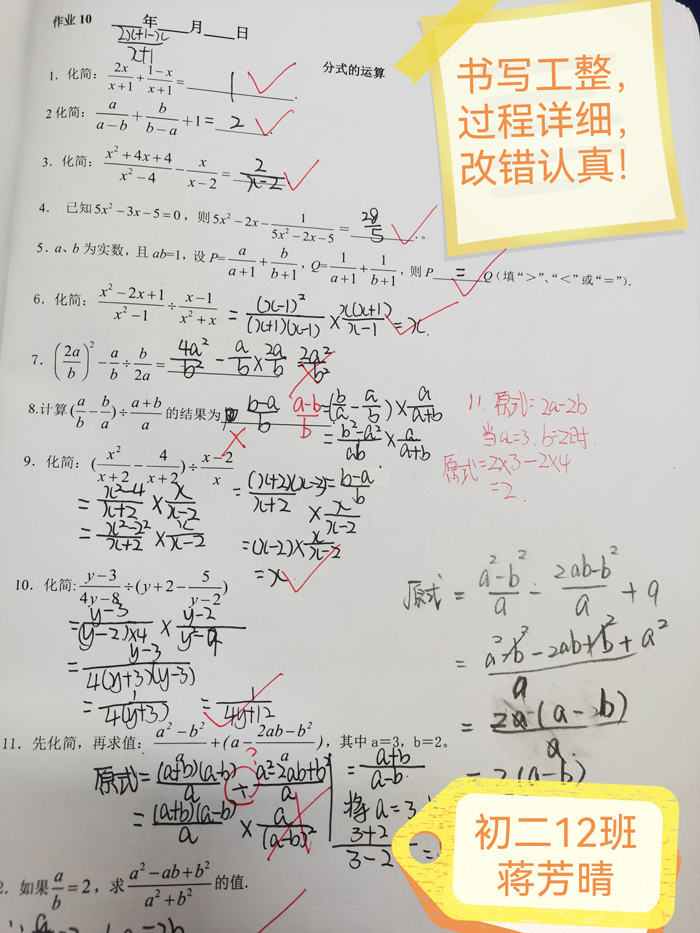 作业 10
年 月 日
(2x+1-x)/(x+1)
分式的运算
1. 化简: 2x/(x+1) + (1-x)/(x+1) = 1 .
2 化简: a/(a-b) + b/(b-a) + 1 = 2 .
3. 化简: (x²+4x+4)/(x²-4) - x/(x-2) = 2/(x-2)
4. 已知 5x²-3x-5=0, 则 5x²-2x-1/(5x²-2x-5) = 28/5 。
5. a、b 为实数, 且 ab=1, 设 P= a/(a+1) + b/(b+1), Q= 1/(a+1) + 1/(b+1), 则 P = Q (填“>”、“<”或“=”).
6. 化简: (x²-2x+1)/(x²-1) ÷ (x-1)/(x²+x) = (x-1)²/((x+1)(x-1)) × x(x+1)/(x-1) = x.
7. (2a/b)² - a/b ÷ b/2a = 4a²/b² - a/b × 2a/b = 2a²/b²
8.计算 (a/b - b/a) ÷ (a+b)/a 的结果为 (b-a)/b (a-b)/b = (b/a - a/b) × a/(a+b)
= (b²-a²)/ab × a/(a+b)
= (b-a)/b
9. 化简: (x²/(x+2) - 4/(x+2)) ÷ (x-2)/x
= (x²-4)/(x+2) × x/(x-2)
= (x²-2²)/(x+2) × x/(x-2)
= (x+2)(x-2)/(x+2) × x/(x-2)
= (x-2) × x/(x-2)
= x.
11. 原式 = 2a-2b
当 a=3. b=2时.
原式 = 2×3-2×4
= 2.
10. 化简: (y-3)/(4y-8) ÷ (y+2-5/(y-2))
= (y-3)/((y-2)×4) × (y-2)/(y²-9)
= (y-3)/(4(y+3)(y-3))
= 1/(4(y+3)) = 1/(4y+12)
原式 = (a²-b²)/a - (2ab-b²)/a + a
= (a²-b²-2ab+b²+a²)/a
= 2a(a-b)/a
= 2(a-b)
11. 先化简, 再求值: (a²-b²)/a + (a-(2ab-b²)/a), 其中 a=3, b=2。
原式 = (a+b)(a-b)/a ÷ (a²-2ab+b²)/a
?
= (a+b)(a-b)/a × a/(a-b)²
= (a+b)/(a-b)
将 a=3
(3+2)/(3-2) =
2. 如果 a/b = 2, 求 (a²-ab+b²)/(a²+b²) 的值.
书写工整,
过程详细,
改错认真!
初二12班
蒋芳晴